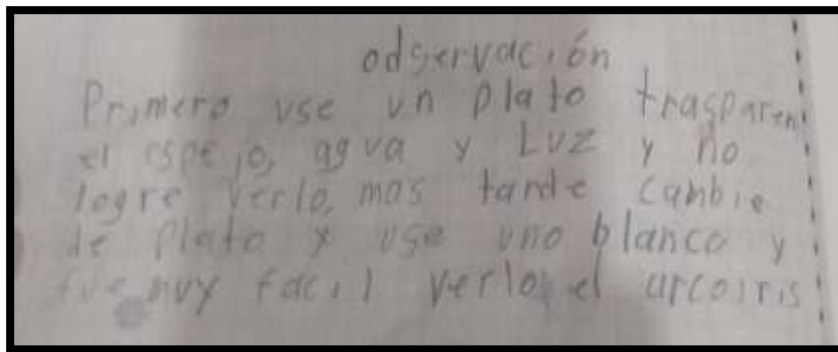 odservación
Primero use un plato trasparen
el espejo, agua y Luz y no
logre verlo, mas tarde cambie
de plato y use uno blanco y
fue muy facil verlo el arcoiris